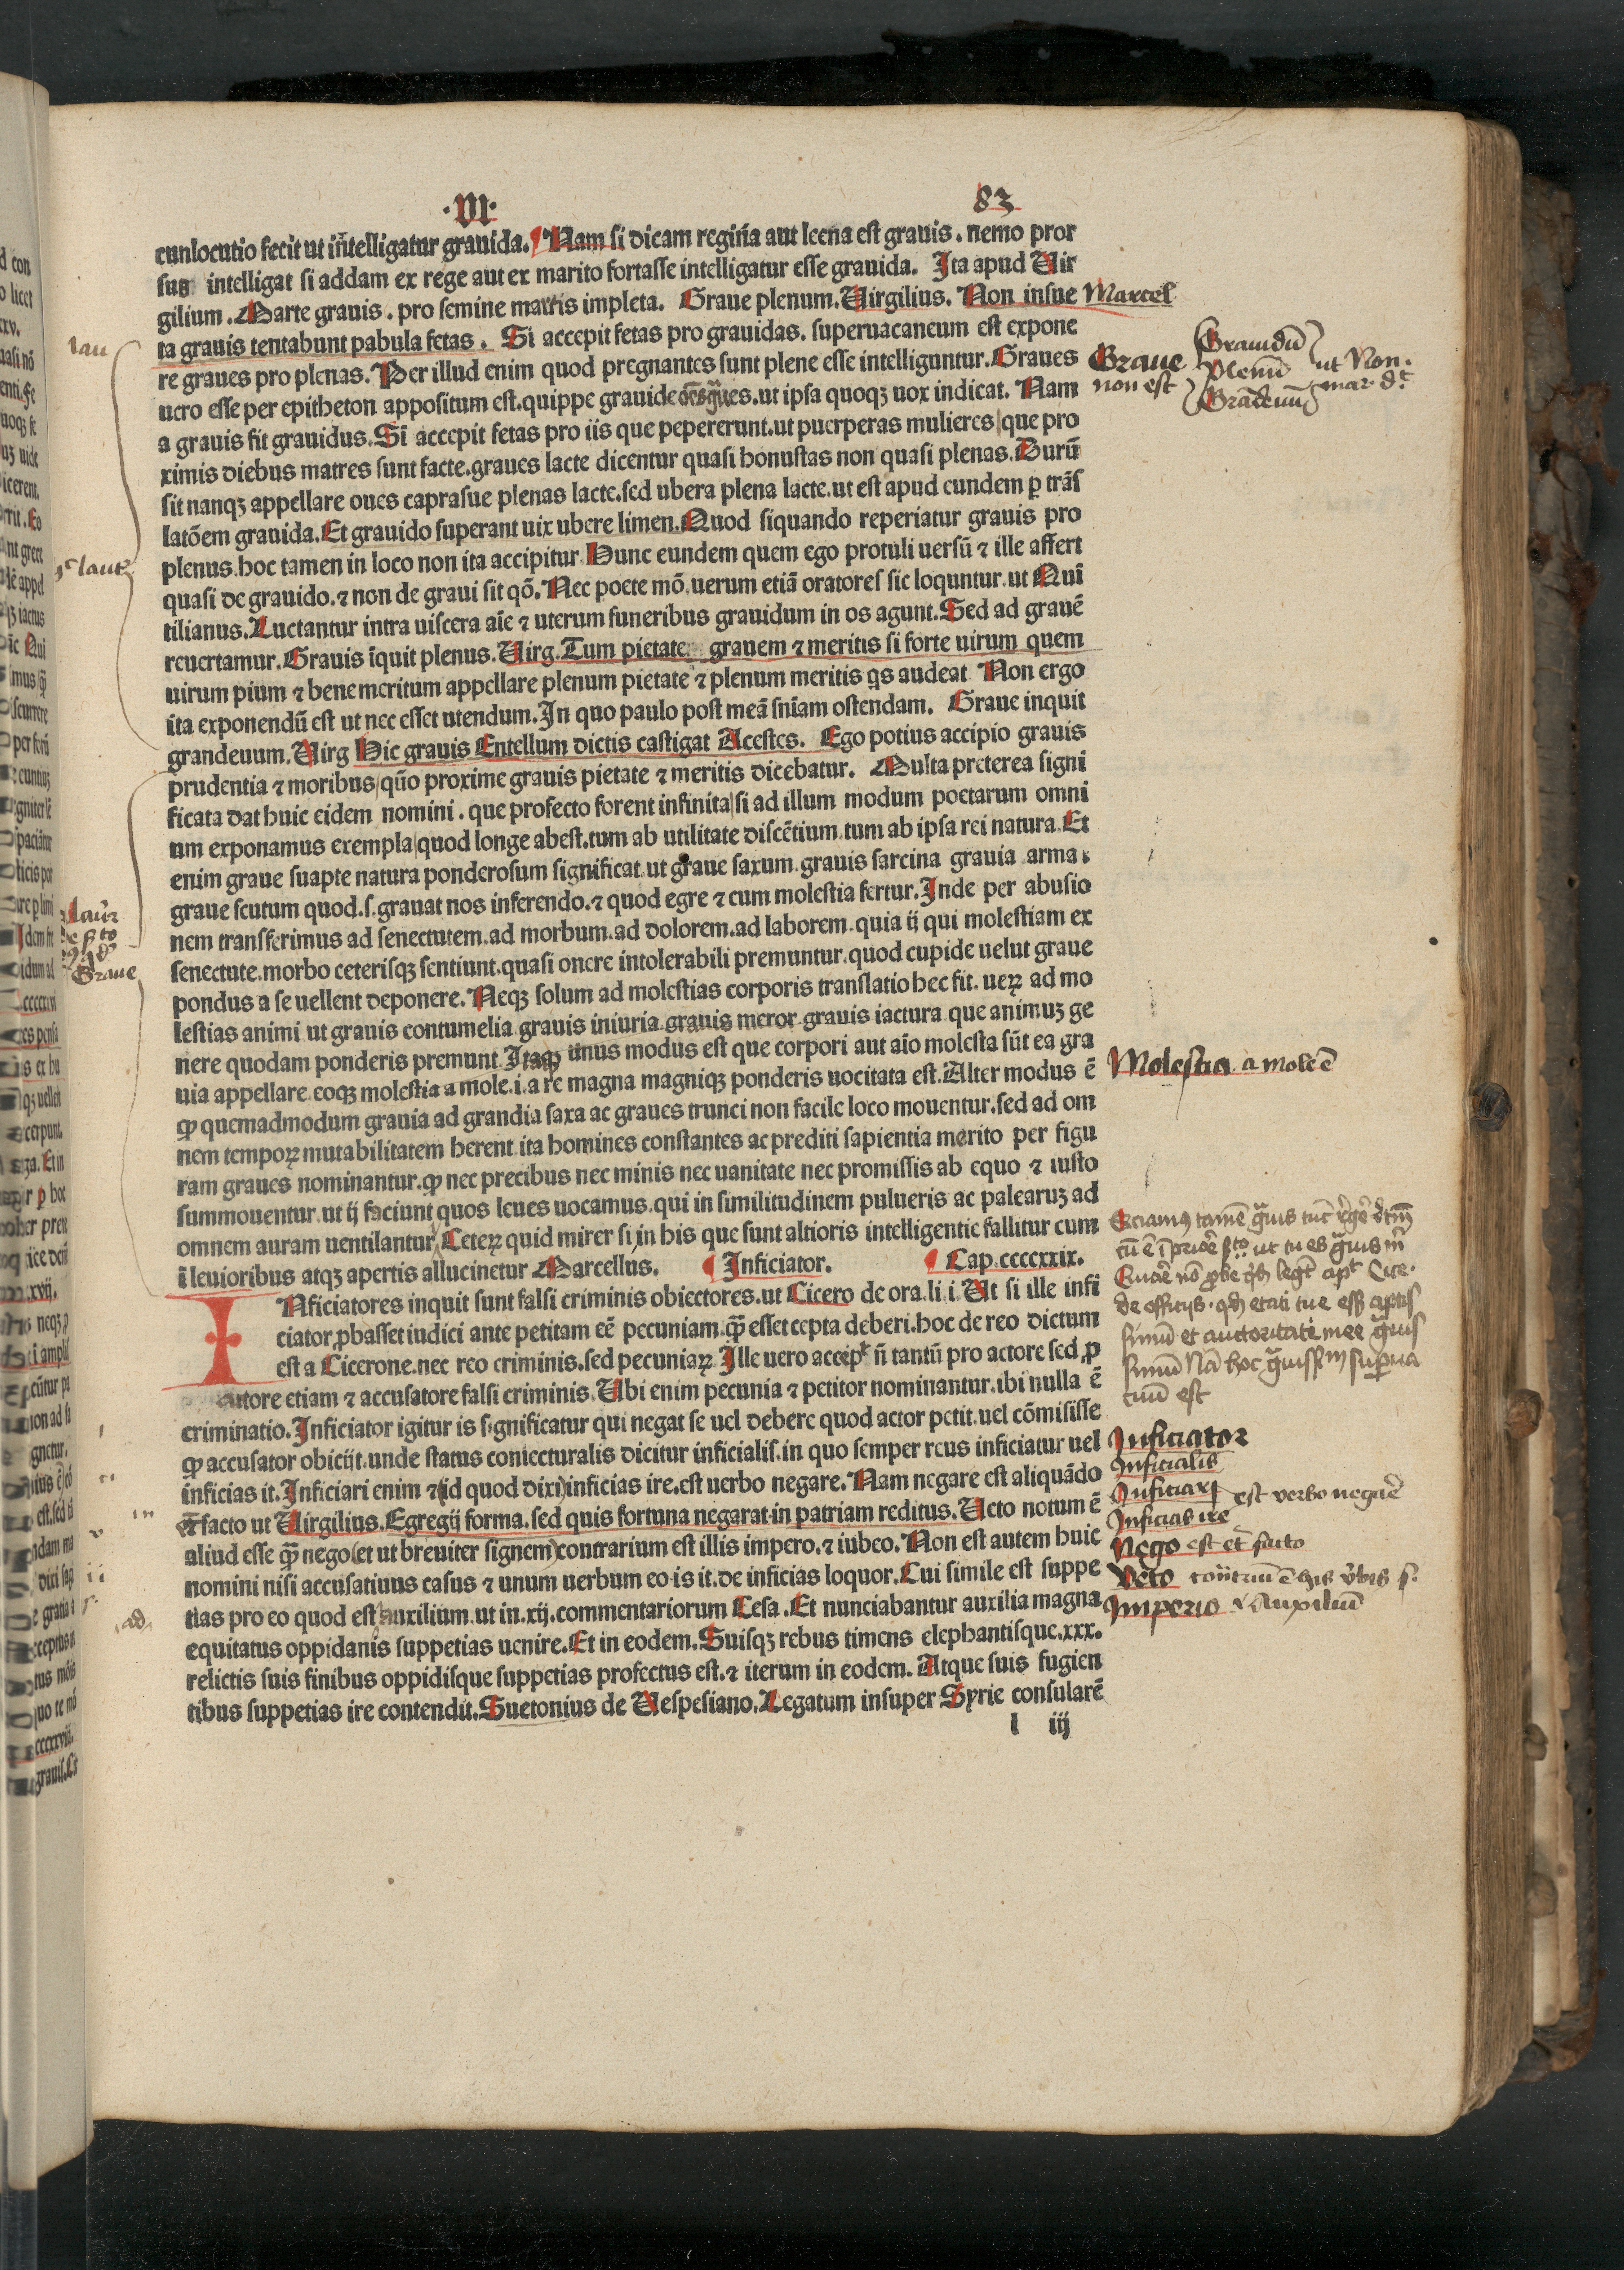 ·VI·
83
cunlocutio fecit ut intelligatur grauida. Nam si dicam regina aut leena est grauis. nemo pror
sus intelligat si addam ex rege aut ex marito fortasse intelligatur esse grauida. Ita apud Uir
gilium. Marte grauis. pro semine martis impleta. Graue plenum. Uirgilius. Non insue
ta grauis tentabunt pabula fetas. Si accepit fetas pro grauidas. superuacaneum est expone
re graues pro plenas. Per illud enim quod pregnantes sunt plene esse intelliguntur. Graues
uero esse per epitheton appositum est. quippe grauide oēs graues. ut ipsa quoqꝫ uox indicat. Nam
a grauis fit grauidus. Si accepit fetas pro iis que pepererunt. ut puerperas mulieres que pro
ximis diebus matres sunt facte. graues lacte dicentur quasi honustas non quasi plenas. Durū
sit nanqꝫ appellare oues caprasue plenas lacte. sed ubera plena lacte. ut est apud eundem ꝑ trās
latōem grauida. Et grauido superant uix ubere limen. Quod siquando reperiatur grauis pro
plenus. hoc tamen in loco non ita accipitur Hunc eundem quem ego protuli uersū ⁊ ille affert
quasi de grauido. ⁊ non de graui sit qō. Nec poete mō. uerum etiā oratores sic loquntur. ut Qui
tilianus. Luctantur intra uiscera aīe ⁊ uterum funeribus grauidum in os agunt. Sed ad grauē
reuertamur. Grauis īquit plenus. Uirg. Tum pietate grauem ⁊ meritis si forte uirum quem
uirum pium ⁊ benemeritum appellare plenum pietate ⁊ plenum meritis qs audeat Non ergo
ita exponendū est ut nec esset utendum. In quo paulo post meā sniam ostendam. Graue inquit
grandeuum. Uirg Hic grauis Entellum dictis castigat Acestes. Ego potius accipio grauis
prudentia ⁊ moribus quo proxime grauis pietate ⁊ meritis dicebatur. Multa preterea signi
ficata dat huic eidem nomini. que profecto forent infinita si ad illum modum poetarum omni
um exponamus exempla quod longe abest. tum ab utilitate discētium. tum ab ipsa rei natura. Et
enim graue suapte natura ponderosum significat. ut graue saxum. grauis sarcina grauia arma.
graue scutum quod. s. grauat nos inferendo. ⁊ quod egre ⁊ cum molestia fertur. Inde per abusio
nem transferimus ad senectutem. ad morbum. ad dolorem. ad laborem. quia ij qui molestiam ex
senectute. morbo ceterisqꝫ sentiunt. quasi onere intolerabili premuntur. quod cupide uelut graue
pondus a se uellent deponere. Neqꝫ solum ad molestias corporis translatio hec fit. ueꝝ ad mo
lestias animi ut grauis contumelia grauis iniuria. grauis meror. grauis iactura que animuꝫ ge
nere quodam ponderis premunt Itaqꝫ unus modus est que corpori aut aīo molesta sūt ea gra
uia appellare. eoqꝫ molestia a mole. i. a re magna magniqꝫ ponderis uocitata est. Alter modus ē
ꝙ quemadmodum grauia ad grandia saxa ac graues trunci non facile loco mouentur. sed ad om
nem tempoꝝ mutabilitatem herent. ita homines constantes ac prediti sapientia merito per figu
ram graues nominantur. ꝙ nec precibus nec minis nec uanitate nec promissis ab equo ⁊ iusto
summouentur. ut ij faciunt quos leues uocamus. qui in similitudinem pulueris ac palearuꝫ ad
omnem auram uentilantur. Ceteꝝ quid mirer si in his que sunt altioris intelligentie fallitur cum
ī leuioribus atqꝫ apertis allucinetur Marcellus. Inficiator. Cap. ccccxxix.
INficiatores inquit sunt falsi criminis obiectores. ut Cicero de ora. li. i. Ut si ille infi
ciator ꝓbasset iudici ante petitam eē pecuniam. ꝙ̄ esset cepta deberi. hoc de reo dictum
est a Cicerone. nec reo criminis. sed pecuniaꝝ. Ille uero accepit n̄ tantū pro actore sed ꝓ
autore etiam ⁊ accusatore falsi criminis. Ubi enim pecunia ⁊ petitor nominantur. ibi nulla ē
criminatio. Inficiator igitur is significatur qui negat se uel debere quod actor petit. uel cōmisisse
ꝙ accusator obicijt. unde status coniecturalis dicitur inficialis. in quo semper reus inficiatur uel
inficias it. Inficiari enim ⁊ (id quod dixi) inficias ire. est uerbo negare. Nam negare est aliquādo
et facto ut Uirgilius. Egregij forma. sed quis fortuna negarat in patriam reditus. Ueto notum ē
aliud esse ꝙ̄ nego (et ut breuiter signem) contrarium est illis impero. ⁊ iubeo. Non est autem huic
nomini nisi accusatiuus casus ⁊ unum uerbum eo is it. de inficias loquor. Cui simile est suppe
tias pro eo quod est auxilium. ut in. xij. commentariorum Cesa. Et nunciabantur auxilia magna
equitatus oppidanis suppetias uenire. Et in eodem. Suisqꝫ rebus timens elephantisque. xxx.
relictis suis finibus oppidisque suppetias profectus est. ⁊ iterum in eodem. Atque suis fugien
tibus suppetias ire contendit. Suetonius de Uespesiano. Legatum insuper Syrie consularē
l iij
Marcel
Graue
non est
Grauidū
Plenū
Grādeuū
ut Non.
mar. d.t
Molestia a mole ē
Inficiator
Inficialis
Inficiari est verbo negare
Inficias ire
Nego est et facto
Veto
Imperio
lau
Graue
ad
in